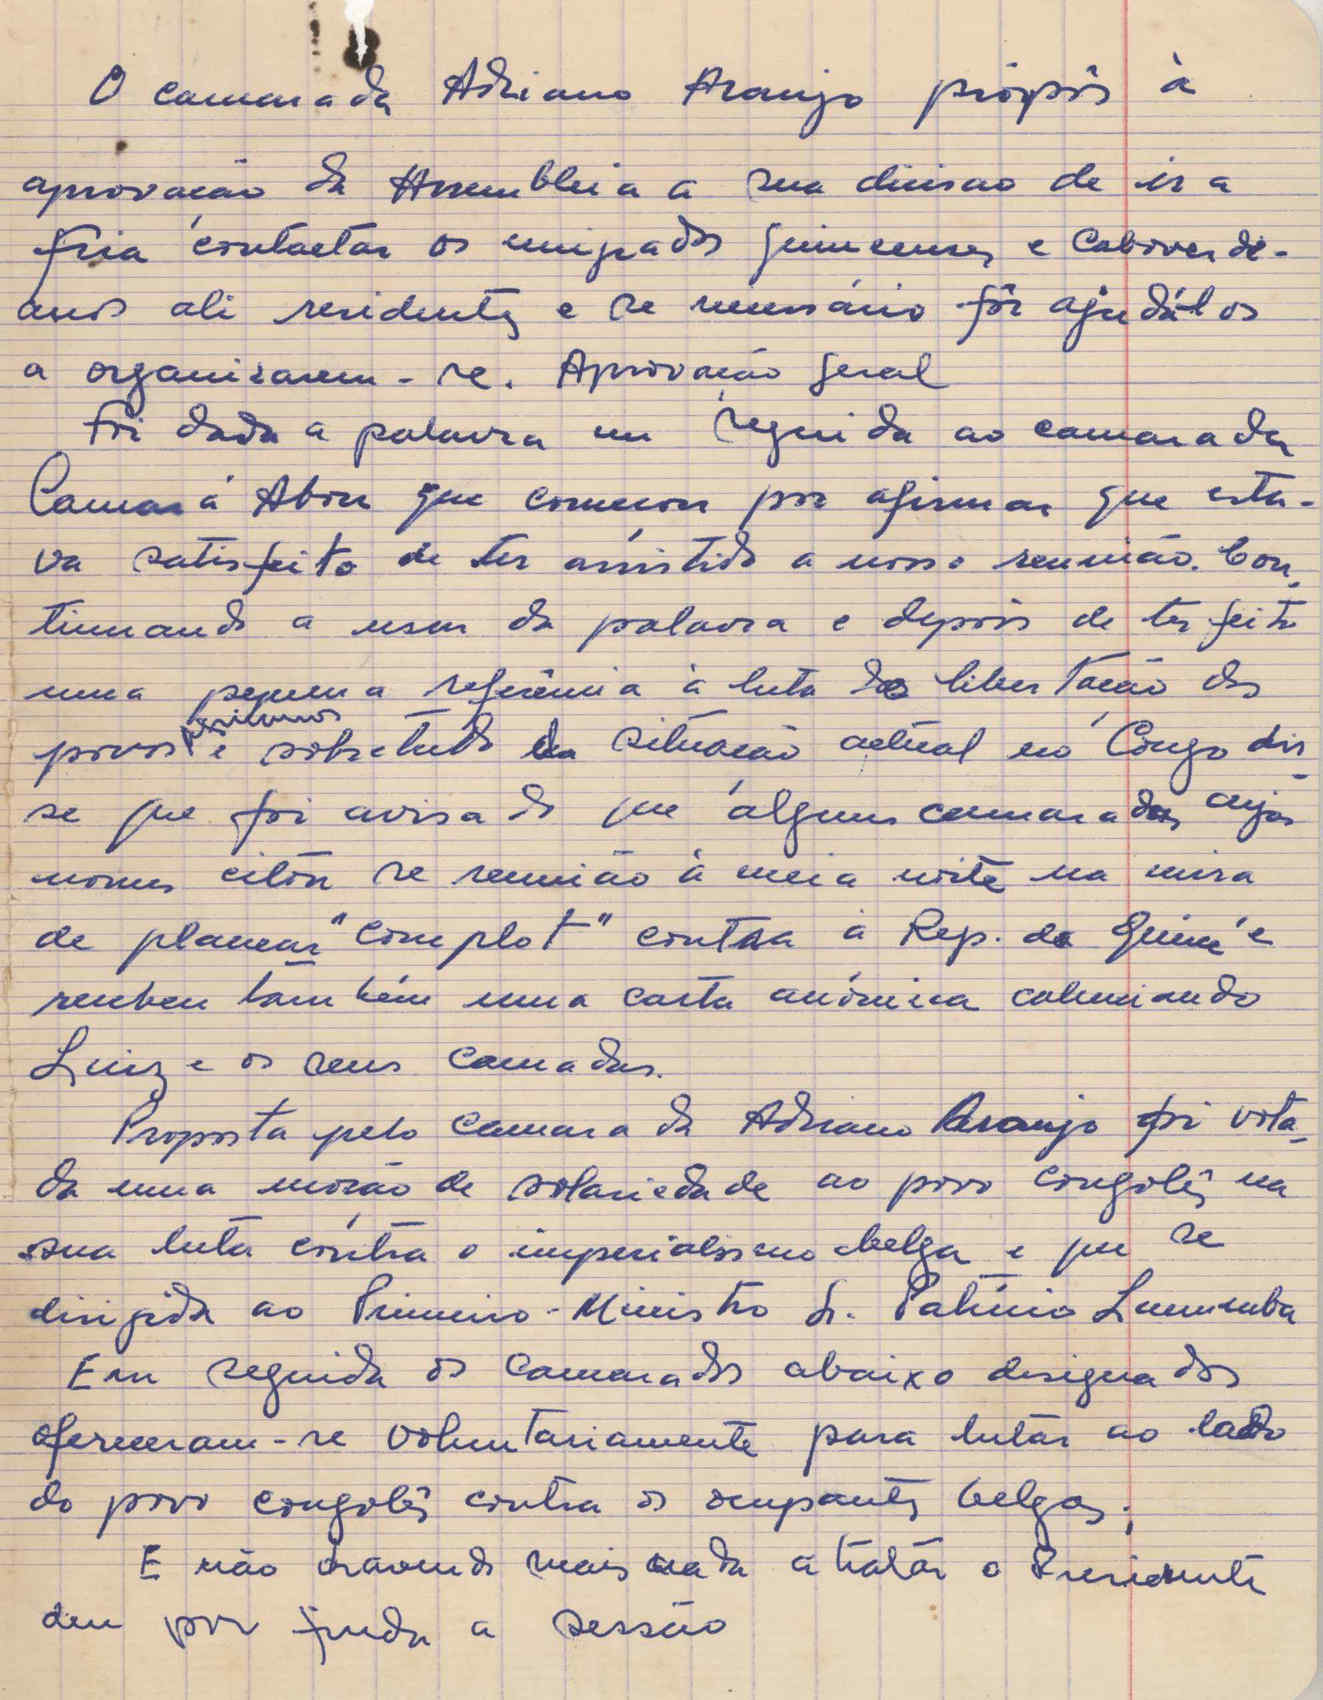 O camarada Adriano Araujo própôs à
aprovação da Assembleia a sua dicisao de ir a
Fria contactar os emigrados guineenses e Caboverde-
anos ali residentes e se necessário fôr ajudál os
a organizarem-se. Aprovação geral
Foi dada a palavra em seguida ao camarada
Camará Abou que começou por afirmar que esta-
va satisfeito de ter assistido a nossa reunião. Con-
tinuando a usar da palavra e depois de ter feito
uma pequena referência à luta de libertação dos
povos africanos e sobretudo da situação actual no Congo dis-
se que foi avisado que alguns camaradas cujos
nomes citou se reunião à meia noite na mira
de planear "complot" contra a Rep. da Guiné e
recebeu também uma carta anónima caluniando
Luiz e os seus camadas.
Proposta pelo camarada Adriano Araujo foi vota-
da uma moção de solariedade ao povo congolês na
sua luta contra o imperialismo belga e que se
dirigida ao Primeiro-Ministro Sr. Patricio Lumumba
Em seguida os camarados abaixo designados
ofereceram-se voluntariamente para lutar ao lado
do povo congolês contra os ocupantes belgas;
E não havendo mais nada a tratar o Presidente
deu por finda a sessão